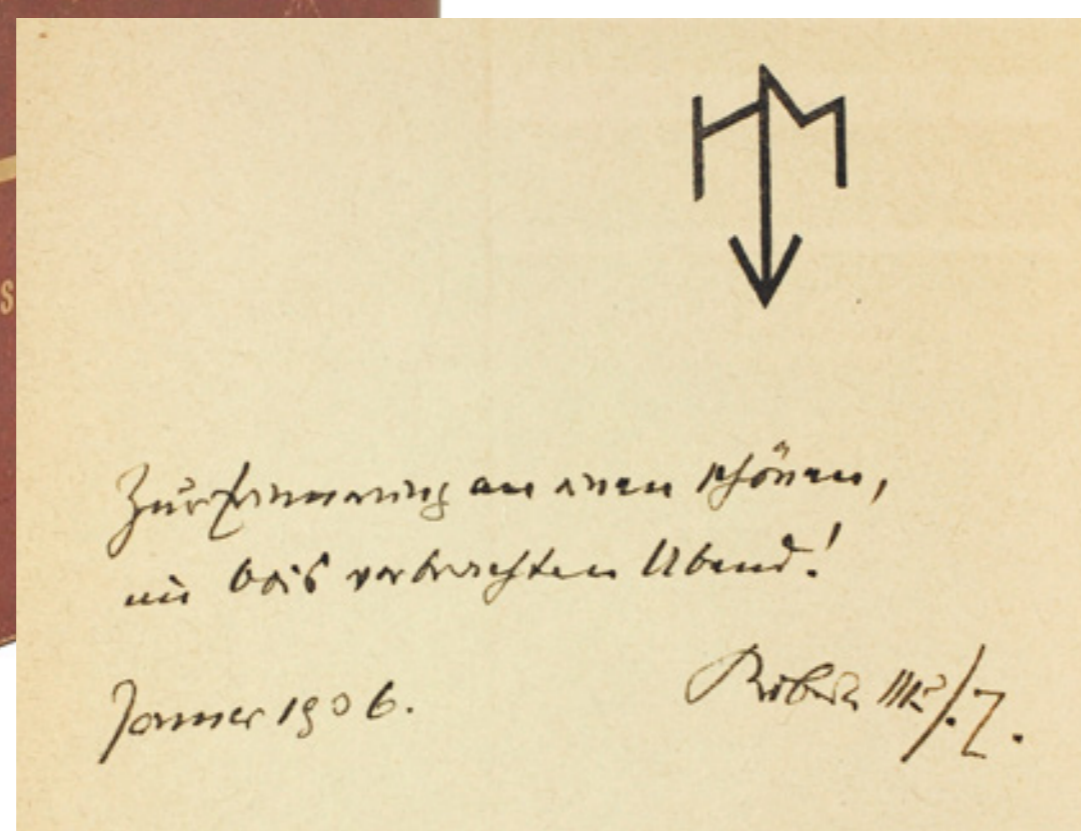 S
Zur Erinnerung an einen schönen,
verbrachten Abend!
Jänner 1906.
Robert